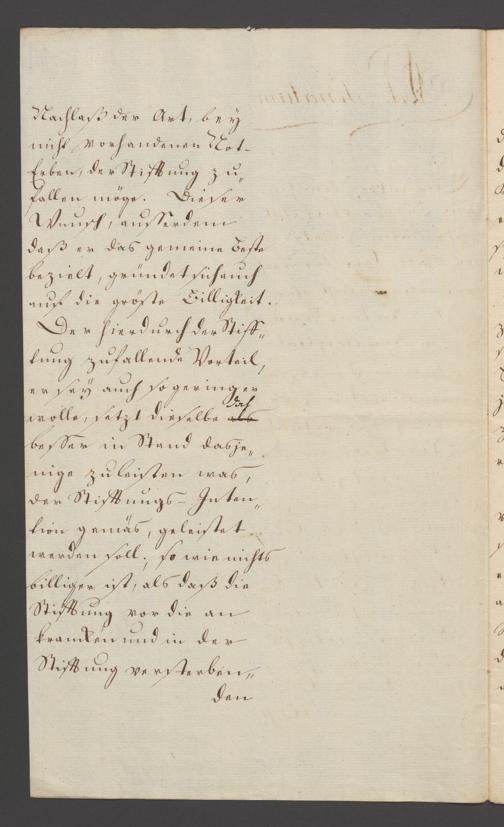 Nachlaß der Art, bey
nicht vorhandenen Not-
Erben, der Stifftung zu„
fallen möge. Dieser
Wunsch, ausserdem
daß er das gemeine Beste
bezielt, gründet sich auch
auf die gröste Billigkeit.
Der hierdurch der Stiff„
tung zufallende Vorteil,
er sey auch so gering er
wolle, setzt dieselbe doch
besser in Stand dasje„
nige zu leisten was,
der Stifftungs-Inten„
tion gemäs, geleistet
werden soll; so wie nichts
billiger ist, als daß die
Stifftung vor die an
kranken und in der
Stifftung versterben„
den